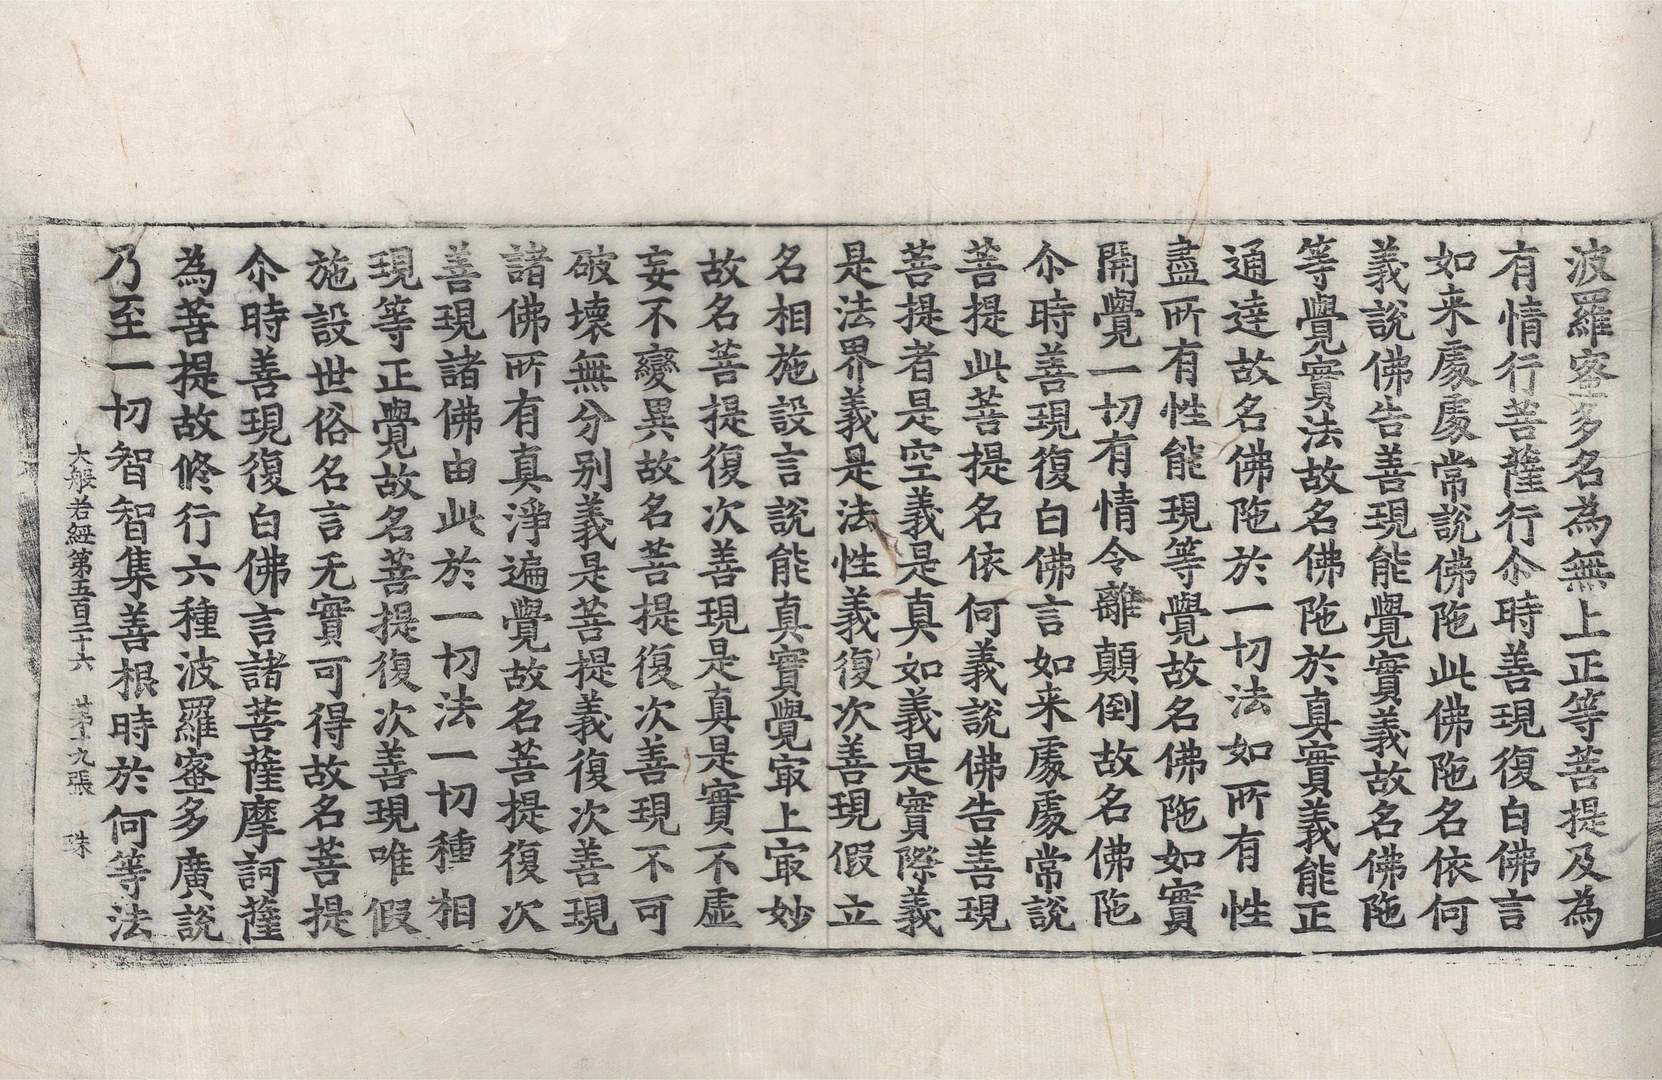 波羅蜜多名為無上正等菩提及為
有情行菩薩行尒時善現復白佛言
如来處處常說佛陁此佛陁名依何
義說佛告善現能覺實義故名佛陁
等覺實法故名佛陁於真實義能正
通達故名佛陁於一切法如所有性
盡所有性能現等覺故名佛陁如實
開覺一切有情令離顛倒故名佛陁
尒時善現復白佛言如来處處常說
菩提此菩提名依何義說佛告善現
菩提者是空義是真如義是實際義
是法界義是法性義復次善現假立
名相施設言說能真實覺㝡上㝡妙
故名菩提復次善現是真是實不虛
妄不變異故名菩提復次善現不可
破壞無分别義是菩提義復次善現
諸佛所有真淨遍覺故名菩提復次
善現諸佛由此於一切法一切種相
現等正覺故名菩提復次善現唯假
施設世俗名言无實可得故名菩提
尒時善現復白佛言諸菩薩摩訶薩
為菩提故修行六種波羅蜜多廣說
乃至一切智智集善根時於何等法
大般若經第五百二十六 苐十九張 珠